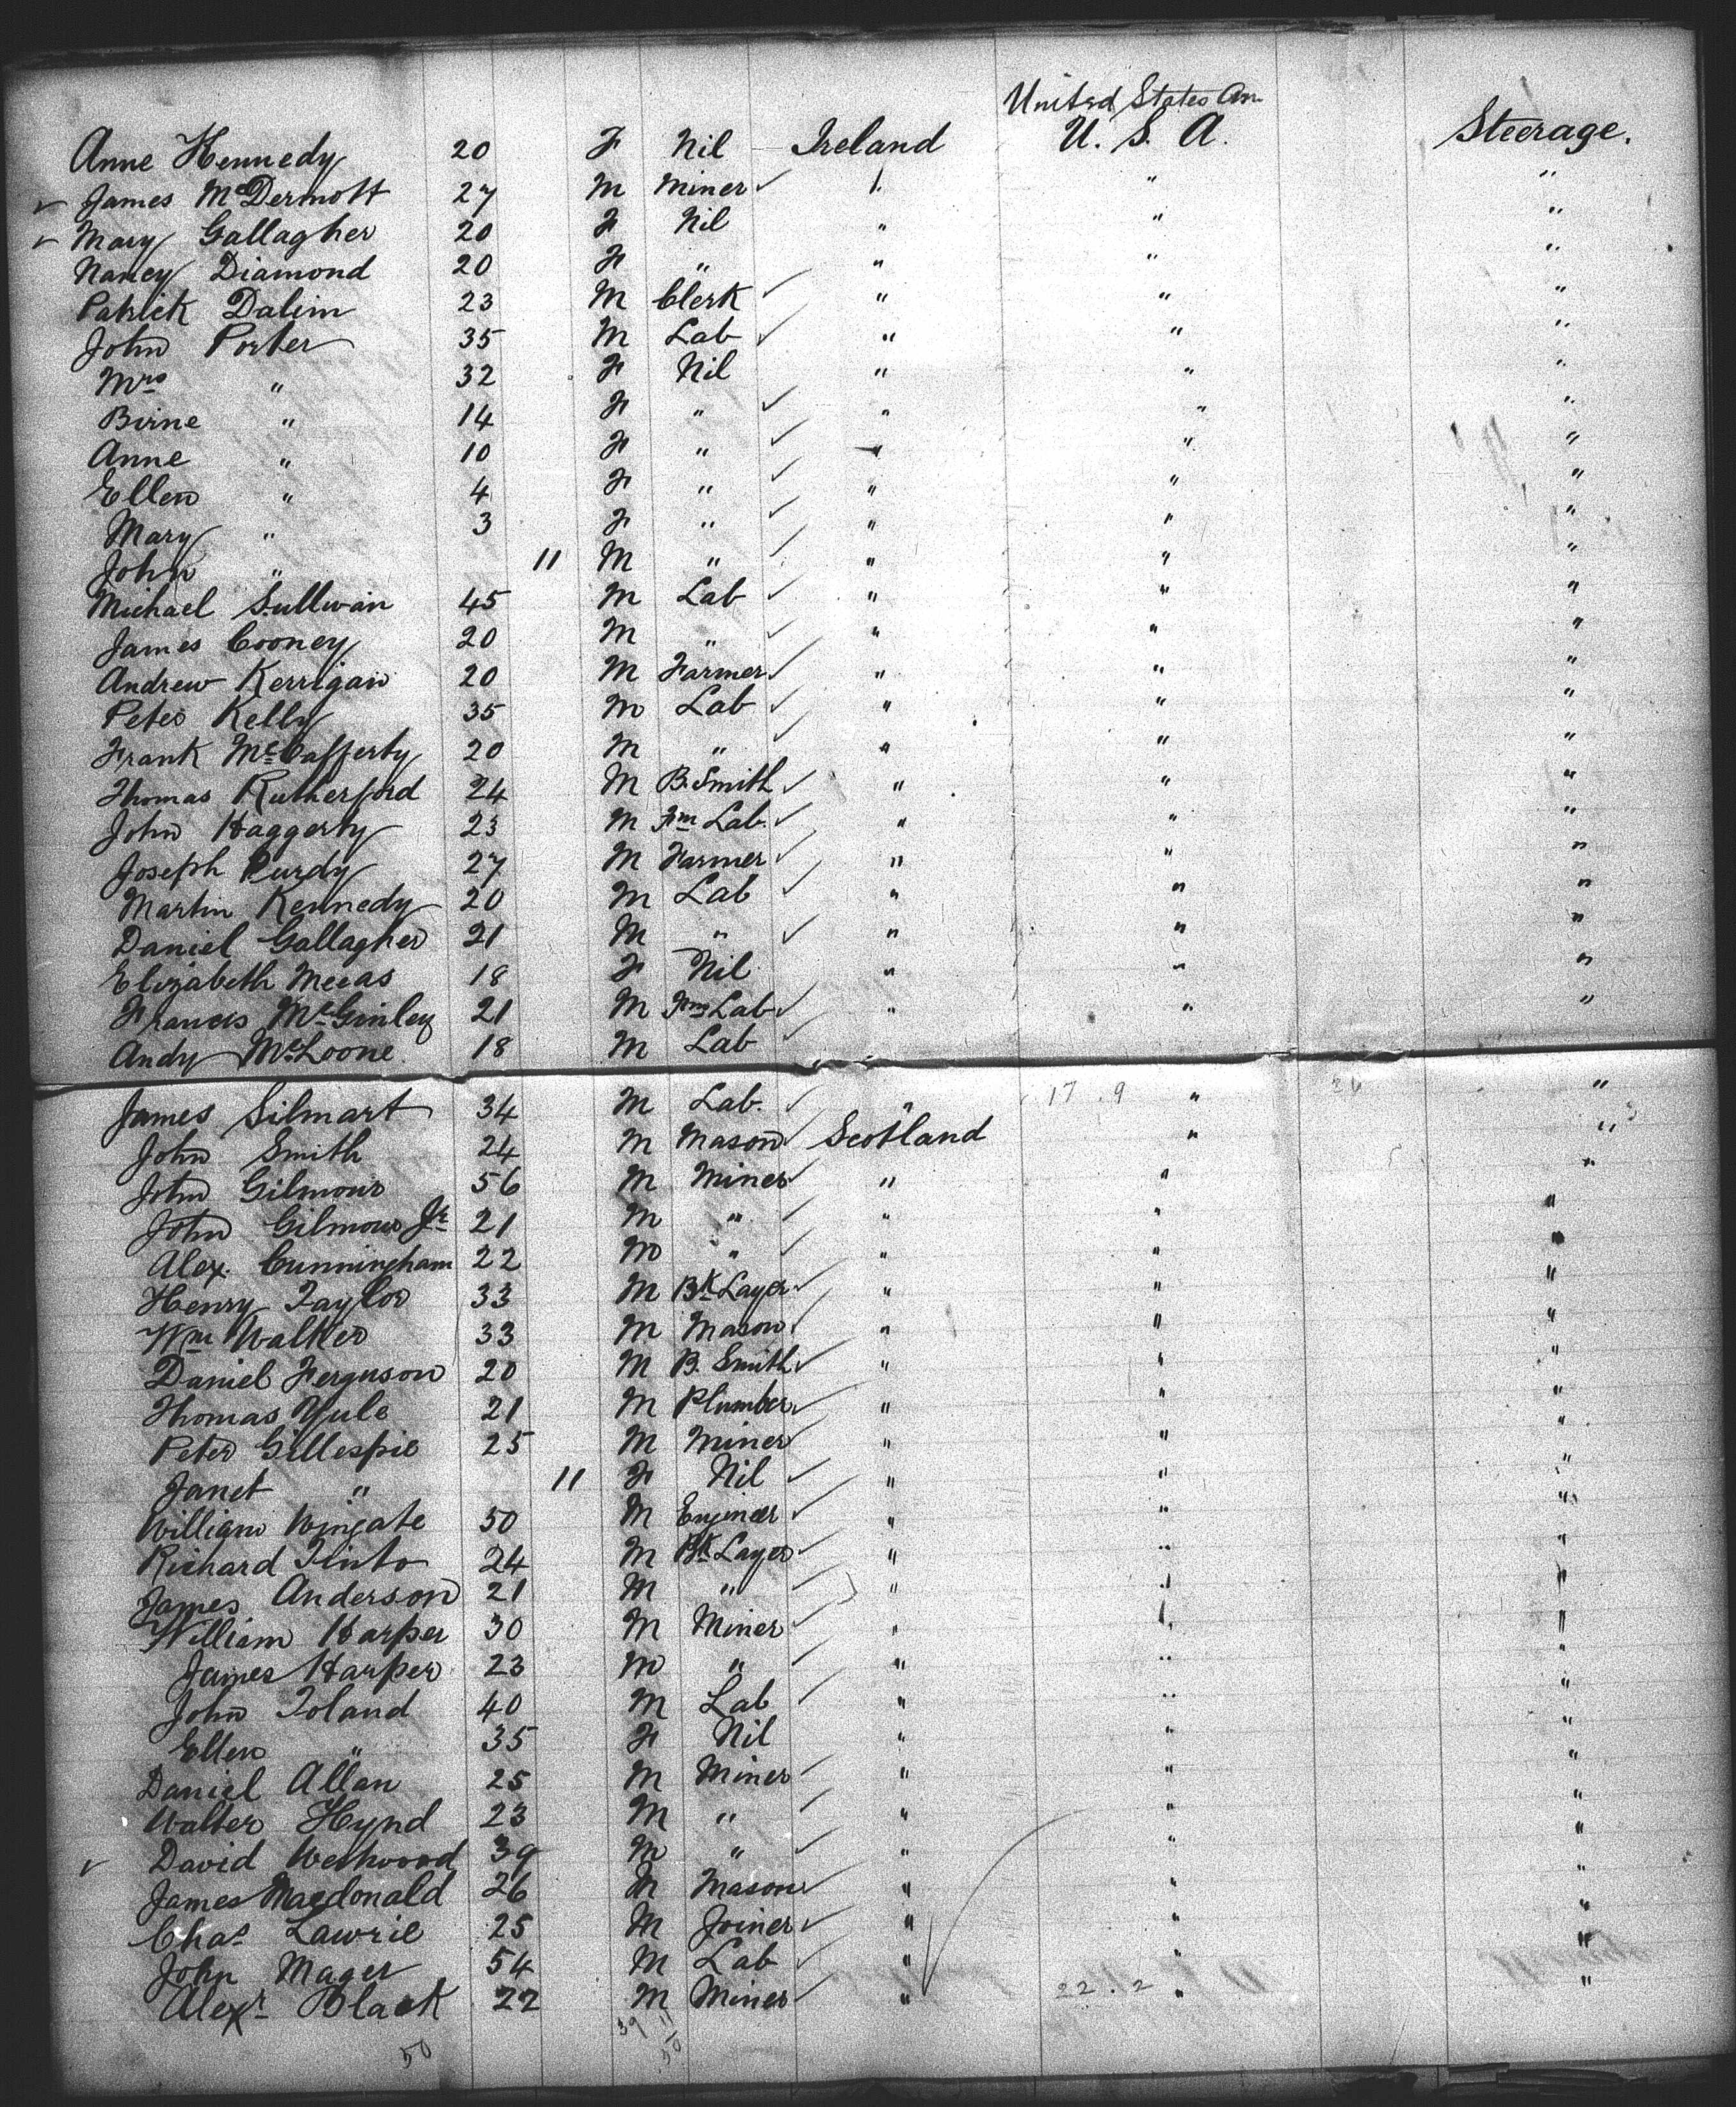 United States Am
Anne Kennedy 20 F Nil Ireland U. S. A. Steerage.
James McDermott 27 M Miner " " "
Mary Gallagher 20 F Nil " " "
Nancy Diamond 20 F " " " "
Patrick Dalim 23 M Clerk " " "
John Porter 35 M Lab " " "
Mrs " 32 F Nil " " "
Birne " 14 F " " " "
Anne " 10 F " " " "
Ellen " 4 F " " " "
Mary " 3 F " " " "
John " 11 M " " " "
Michael Sullivan 45 M Lab " " "
James Cooney 20 M " " " "
Andrew Kerrigan 20 M Farmer " " "
Peter Kelly 35 M Lab " " "
Frank McCafferty 20 M " " " "
Thomas Rutherford 24 M B. Smith " " "
John Haggerty 23 M Fm Lab. " " "
Joseph Purdy 27 M Farmer " " "
Martin Kennedy 20 M Lab " " "
Daniel Gallagher 21 M " " " "
Elizabeth Meeas 18 F Nil " " "
Francis McGinley 21 M Fm Lab " " "
Andy McLoone 18 M Lab
James Gilmart 34 M Lab. " 17.9 " "
John Smith 24 M Mason Scotland " "
John Gilmour 56 M Miner " " "
John Gilmour Jr 21 M " " " "
Alex. Cunningham 22 M " " " "
Henry Taylor 33 M Bk Layer " " "
Wm Walker 33 M Mason " " "
Daniel Ferguson 20 M B. Smith " " "
Thomas Yule 21 M Plumber " " "
Peter Gillespie 25 M Miner " " "
Janet " 11 F Nil " " "
William Wingate 50 M Engineer " " "
Richard Tinto 24 M Bk Layer " " "
James Anderson 21 M " " " "
William Harper 30 M Miner " " "
James Harper 23 M " " " "
John Toland 40 M Lab " " "
Ellen " 35 F Nil " " "
Daniel Allan 25 M Miner " " "
Walter Hynd 23 M " " " "
David Westwood 39 M " " " "
James Macdonald 26 M Mason " " "
Chas Lawrie 25 M Joiner " " "
John Mager 54 M Lab " " "
Alexr Black 22 M Miner " 22.2 " "
39 11
50 50